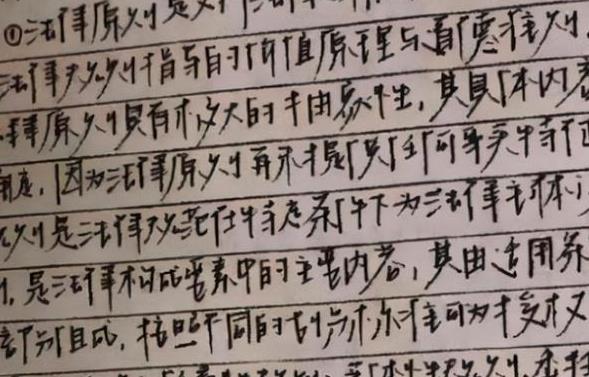 ①法律原则是对法律
法律规则背后的价值原理与道德准则,
律原则具有极大的抽象性,其具体内容
确定,因为法律原则再不提供任何事实特征
规则是法律规范在特定条件下为法律主体
,是法律构成要素中的主要内容,其由适用条
部分组成,按照不同的划分标准可为授权